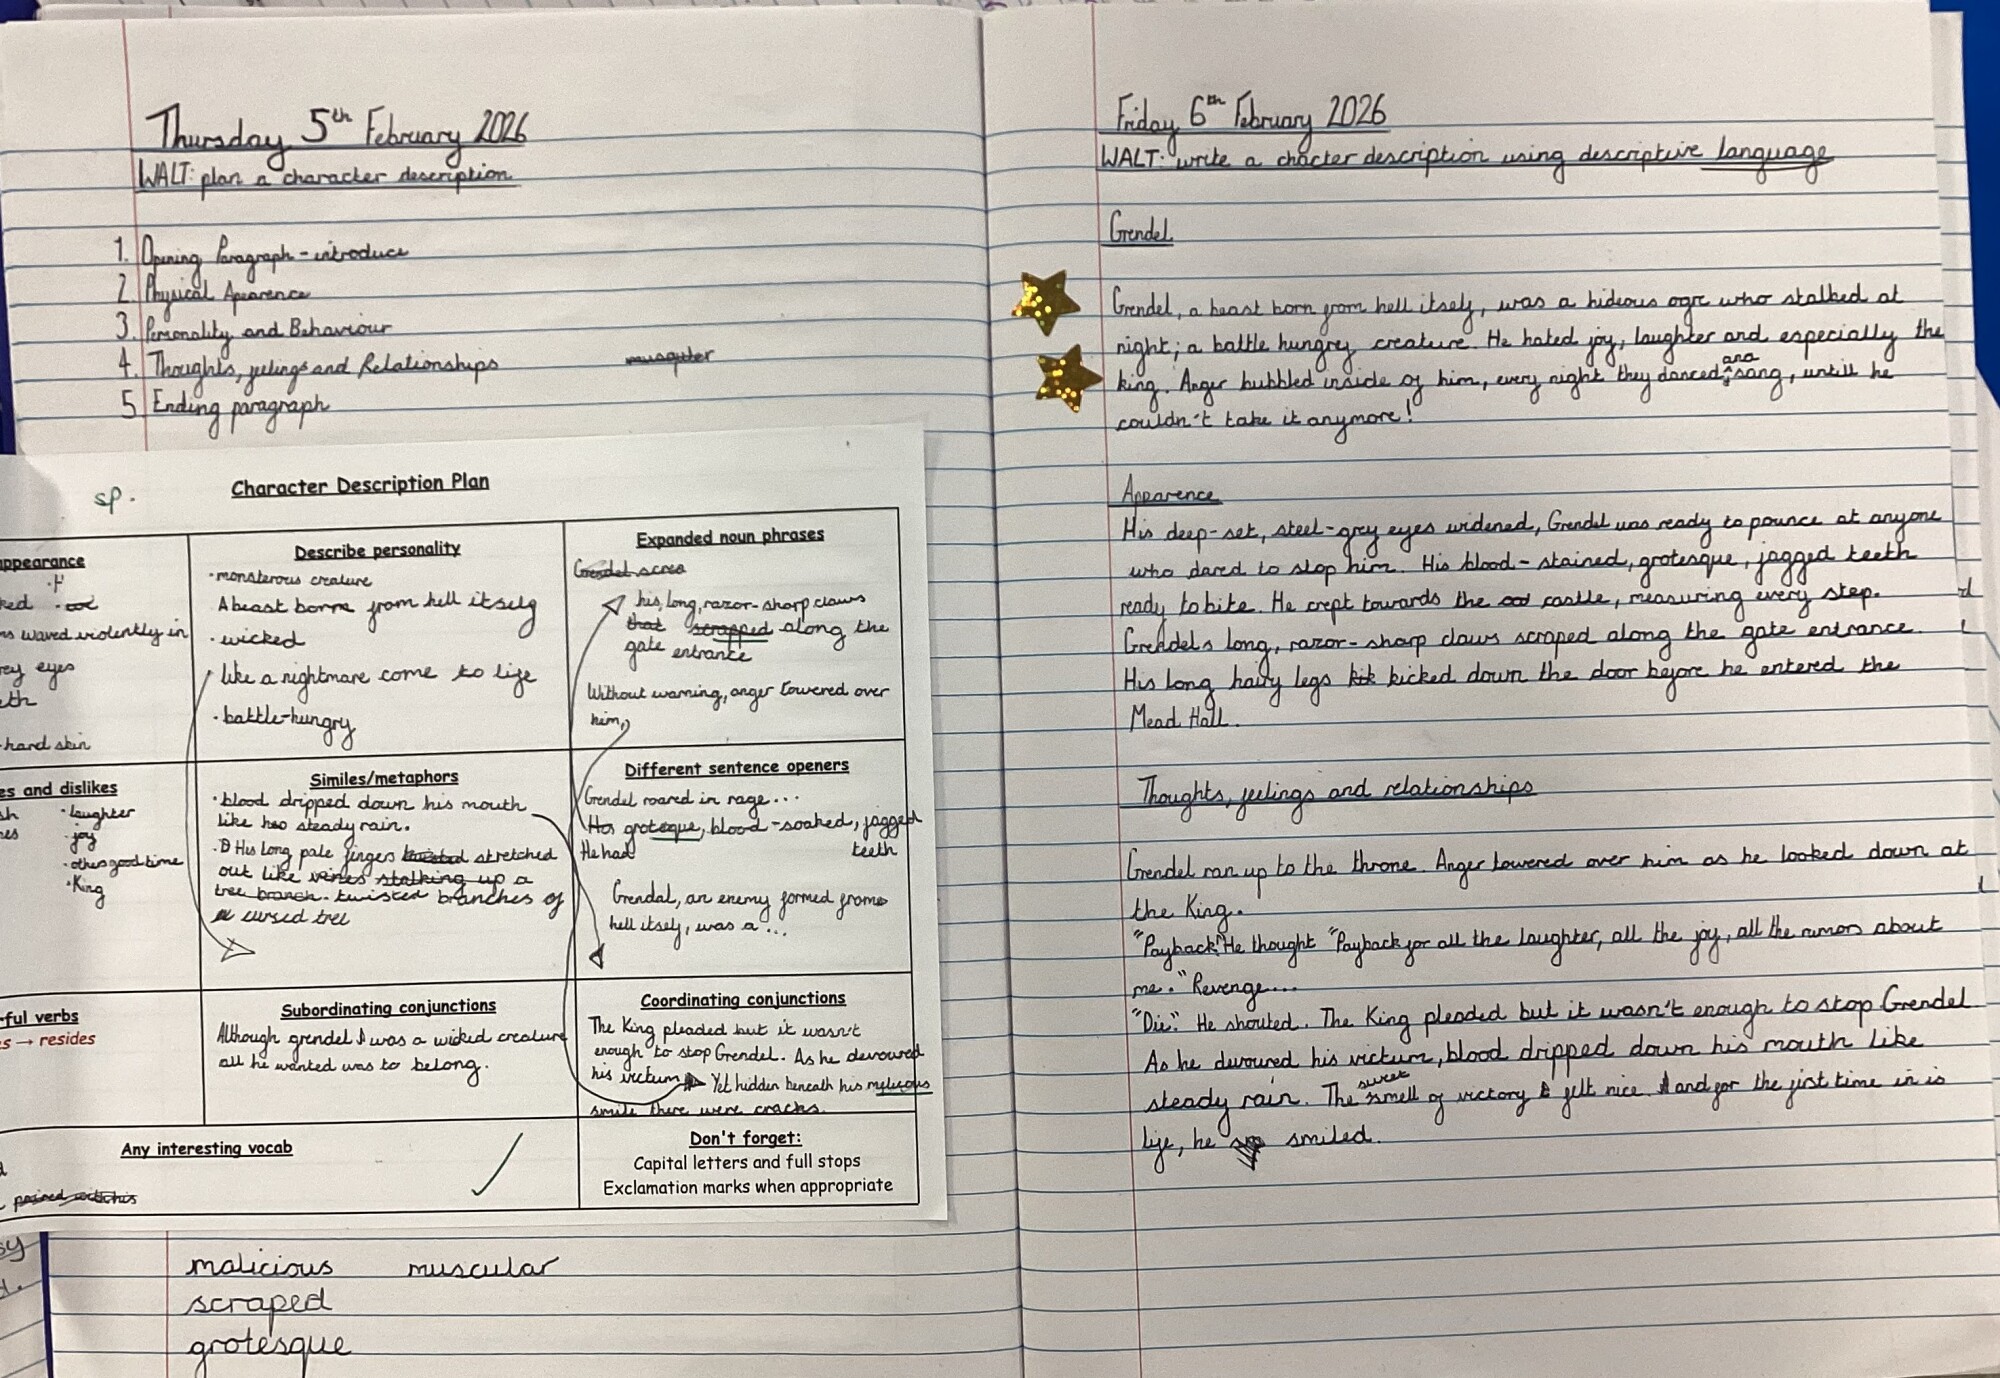 Thursday 5th February 2026
WALT: plan a character description
1. Opening Paragraph - introduce
2. Physical Apearence
3. Personality and Behaviour
4. Thoughts, feelings and Relationships
5 Ending paragraph
sp.
Character Description Plan
appearance
ns waved violently in
rey eyes
eth
-hard skin
Describe personality
·monsterous creature
A beast borne from hell itself
·wicked
like a nightmare come to life
·battle-hungry
Expanded noun phrases
Grendel screa
his, long, razor-sharp claws
that scrapped along the
gate entrance
Without warning, anger towered over
him,
es and dislikes
sh ·laughter
nes ·joy
·others good time
·King
Similes/metaphors
·blood dripped down his mouth
like steady rain.
·His long pale fingers twisted stretched
out like veines stalking up a
tree branch. twister branches of
cursed tree
Different sentence openers
Grendel roared in rage...
His grotesque, blood-soaked, jagged
He had teeth
Grendal, an enemy formed from
hell itself, was a ...
-ful verbs
es → resides
Subordinating conjunctions
Although grendel was a wicked creature
all he wanted was to belong.
Coordinating conjunctions
The King pleaded but it wasn't
enough to stop Grendel. As he devoured
his victum Yet hidden beneath his malicous
smile there were cracks.
Any interesting vocab
paired with his
Don't forget:
Capital letters and full stops
Exclamation marks when appropriate
malicious muscular
scraped
grotesque
Friday 6th February 2026
WALT: write a chacter description using descriptive language
Grendel
Grendel, a beast born from hell itself, was a hideous ogre who stalked at
night; a battle hungry creature. He hated joy, laughter and especially the
king. Anger bubbled inside of him, every night they danced and sang, untill he
couldn't take it anymore!
Apparence
His deep-set, steel-grey eyes widened, Grendel was ready to pounce at anyone
who dared to stop him. His blood-stained, grotesque, jagged teeth
ready to bite. He crept towards the castle, measuring every step.
Grendels long, razor-sharp claws scraped along the gate entrance.
His long hairy legs kik kicked down the door before he entered the
Mead Hall.
Thoughts, feelings and relationships
Grendel ran up to the throne. Anger towered over him as he looked down at
the King.
"Payback" He thought "Payback for all the laughter, all the joy, all the rumors about
me." Revenge....
"Die". He shouted. The King pleaded but it wasn't enough to stop Grendel
As he devoured his victum, blood dripped down his mouth like
steady rain. The sweet smell of victory felt nice. and for the first time in is
life, he smiled.